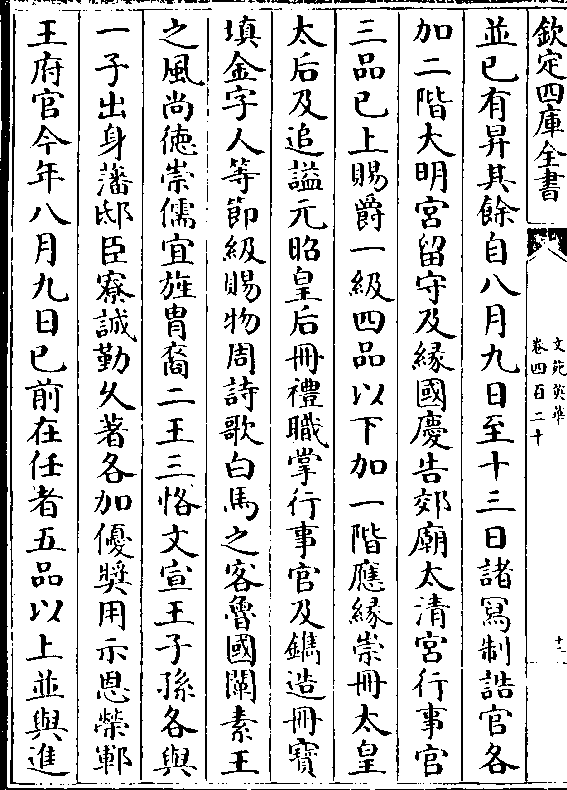 欽定四庫全書
文苑英華
卷四百二十
十二
並已有昇其餘自八月九日至十三日諸冩制誥官各
加二階大明宮留守及縁國慶告郊廟太清宮行事官
三品已上賜爵一級四品以下加一階應縁崇冊太皇
太后及追謚元昭皇后冊禮職掌行事官及鐫造冊寶
填金字人等節級賜物周詩歌白馬之客魯國闡素王
之風尚徳崇儒宜旌胄裔二王三恪文宣王子孫各與
一子出身藩邸臣寮誠勤久著各加優奬用示恩榮鄆
王府官今年八月九日已前在任者五品以上並與進